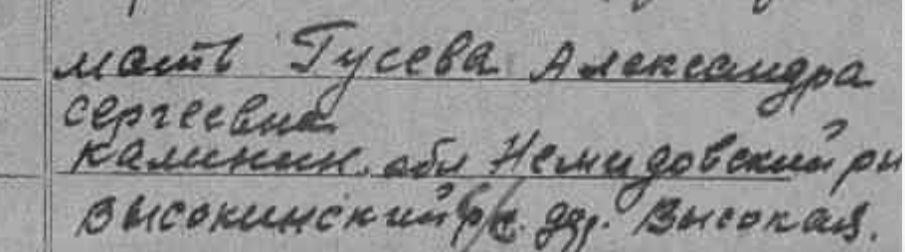 мать Гусева Александра
Сергеевна
Калинин. обл Немидовский рн
Высокинский с/с. д. Высокая.